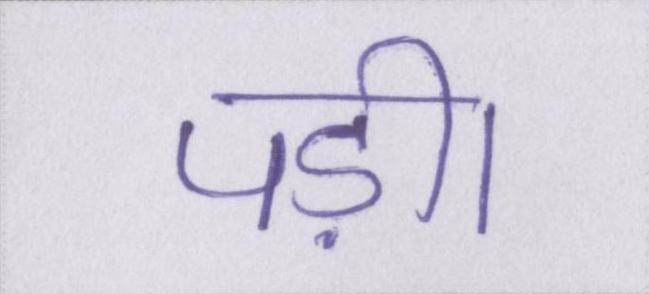 पड़ी।